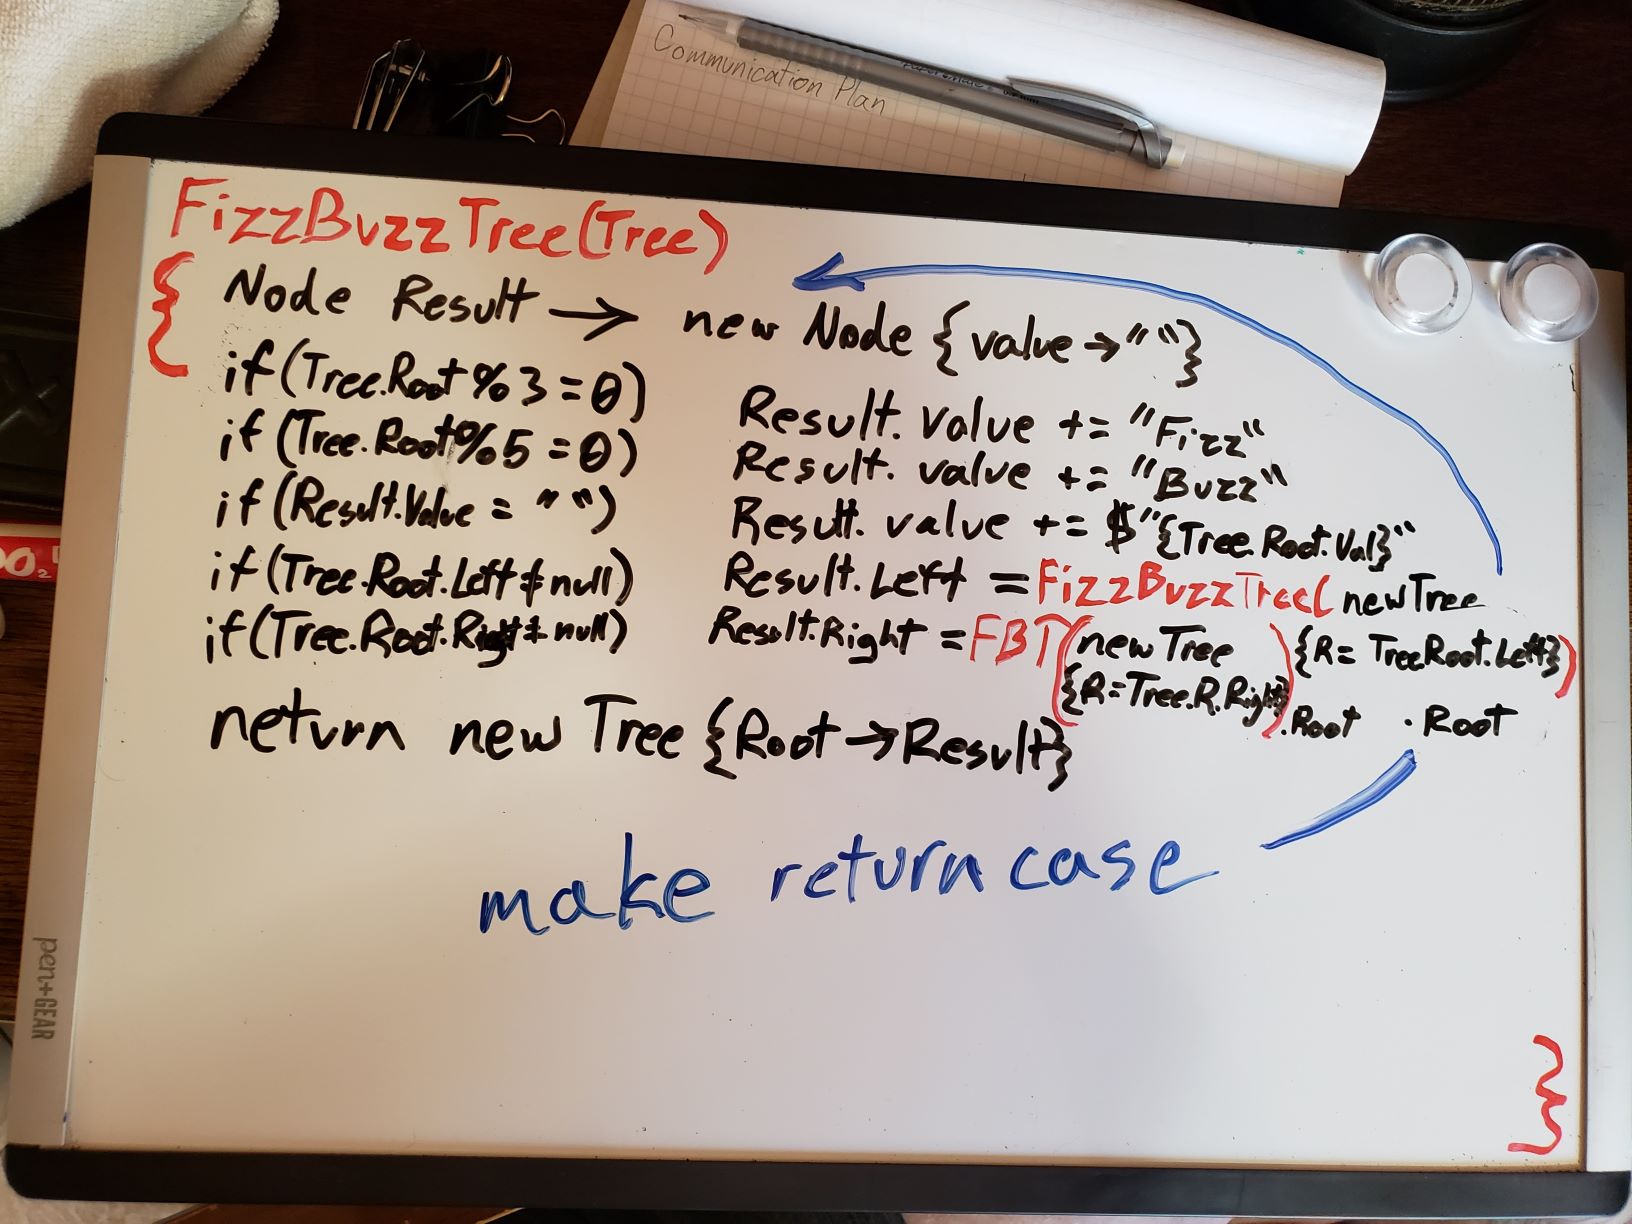 Communication Plan
FizzBuzzTree(Tree)
{
Node Result → new Node {value→""}
if(Tree.Root%3=0) Result.value += "Fizz"
if(Tree.Root%5=0) Result.value += "Buzz"
if(Result.Value = "") Result.value += $"{Tree.Root.Val}"
if(Tree.Root.Left ≠ null) Result.Left = FizzBuzzTree( newTree
{R= Tree.Root.Left})
.Root
if(Tree.Root.Right ≠ null) Result.Right = FBT(newTree
{R=Tree.R.Right}).Root
return new Tree {Root→Result}
make return case
}
pen+GEAR